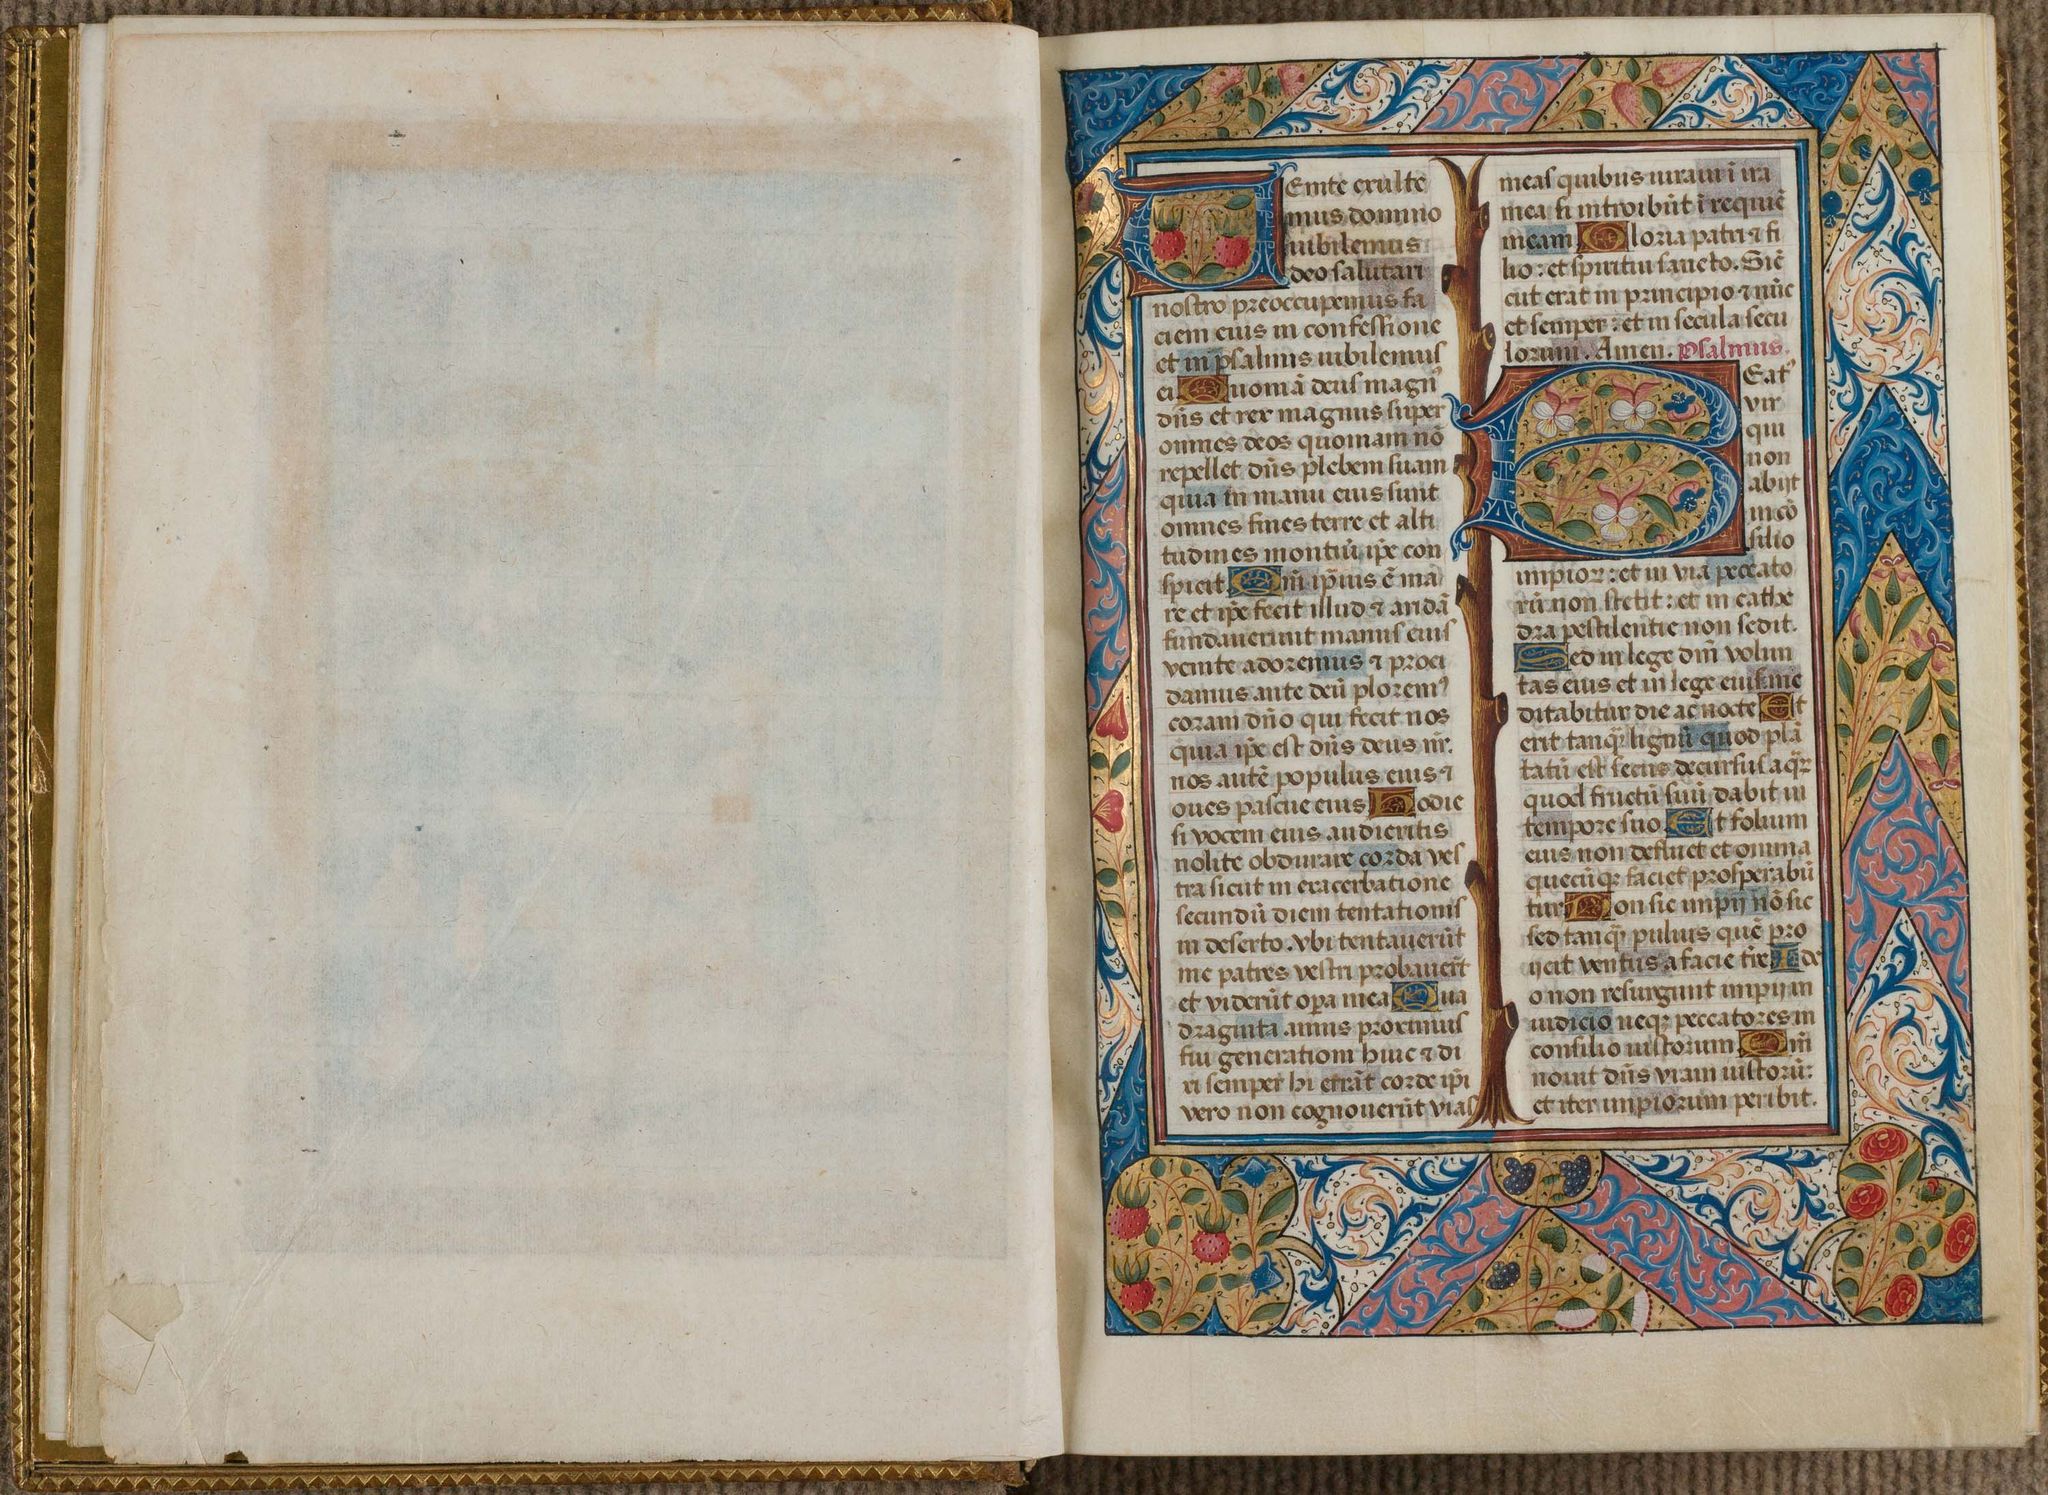 Venite exulte
mus domino
iubilemus
deo salutari
nostro preoccupemus fa
ciem eius in confessione
et in psalmis iubilemus
ei Quoniā deus magn⁹
dn̄s et rex magnus super
omnes deos quoniam nō
repellet dn̄s plebem suam
quia in manu eius sunt
omnes fines terre et alti
tudines montiū ip̄e con
spicit Qm̄ ip̄ius ē ma
re et ip̄e fecit illud ⁊ aridā
fundauerunt manus eius
venite adoremus ⁊ proci
damus ante deū plorem⁹
coram dn̄o qui fecit nos
quia ip̄e est dn̄s deus nr̄.
nos autē populus eius ⁊
oues pascue eius Hodie
si vocem eius audieritis
nolite obdurare corda ves
tra sicut in exacerbatione
secundū diem tentationis
in deserto. vbi tentauerūt
me patres vestri probauerūt
et viderūt op̄a mea Qua
draginta annis proximus
fui generationi huic ⁊ di
xi semper hi errāt corde ip̄i
vero non cognouerūt vias
meas quibus iuraui ī ira
mea si introibūt ī requiē
meam Gloria patri ⁊ fi
lio: et spiritui sancto. Sic̄
cut erat in principio ⁊ nūc
et semper: et in secula secu
lorum. Amen. Psalmus.
Beat⁹
vir
qui
non
abijt
in cō
silio
impioꝝ: et in viā peccato
rū non stetit: et in cathe
dra pestilentie non sedit.
Sed in lege dn̄i volun
tas eius et in lege eius me
ditabitur die ac nocte Et
erit tanqꝫ lignū quod plā
tatū est secus decursus aqꝝ
quod fructū suū dabit in
tempore suo Et folium
eius non defluet et omnia
quecūqꝫ faciet prosperabū
tur Non sic impij nō sic
sed tanqꝫ puluis quē pro
ijcit ventus a facie tr̄e Ide
o non resurgunt impij in
iudicio neqꝫ peccatores in
consilio iustorum Qm̄
nouit dn̄s viam iustorū:
et iter impiorum peribit.